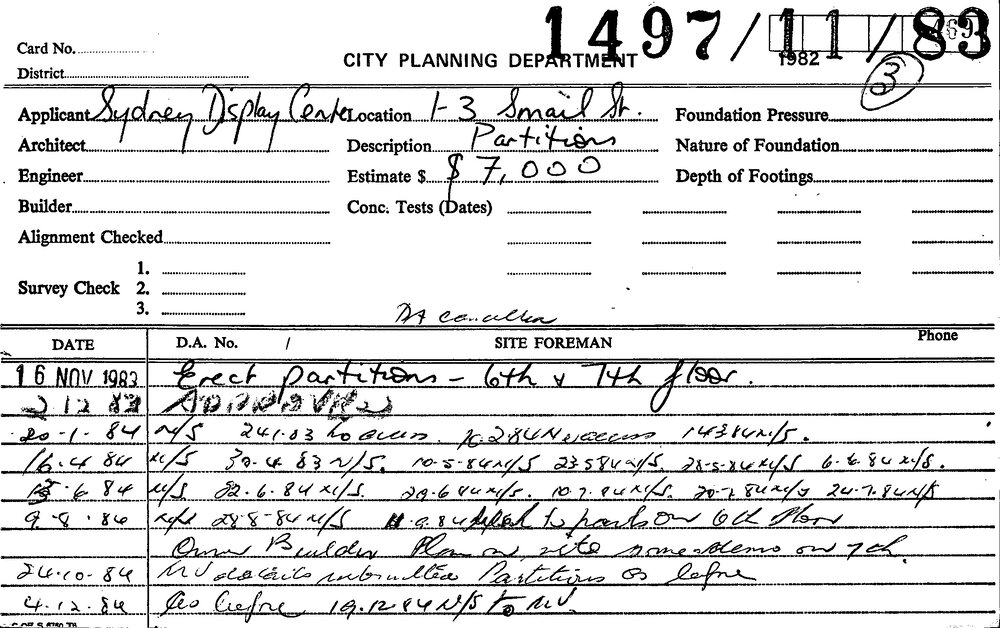 1497/11/83
Card No.
CITY PLANNING DEPARTMENT 1982
District
3
Applicant Sydney Display Center Location 1-3 Smail St. Foundation Pressure
Architect Description Partitions Nature of Foundation
Engineer Estimate $ $7,000 Depth of Footings
Builder Conc. Tests (Dates)
Alignment Checked
1.
Survey Check 2.
3.
DA
DATE D.A. No. / SITE FOREMAN Phone
16 NOV 1983 Erect partitions - 6th & 7th floor.
APPROVED
20-1-84 N/S no access. 14384 N/S.
16.4 84 N/S N/S. 10-5-84 N/S 23584 N/S. 28-5-84 N/S 6-6.84 N/S.
6 84 N/S 22.6.84 N/S. 29.6 84 N/S. 10.7.84 N/S 24-7.84 N/S
9-8.84 N/S 28-8-84 N/S to parts on 6th floor
Owner Builder Plan on site some demo on 7th.
24-10-84 details submitted Partitions as before
4.12.84 As before 19.12 84 N/S